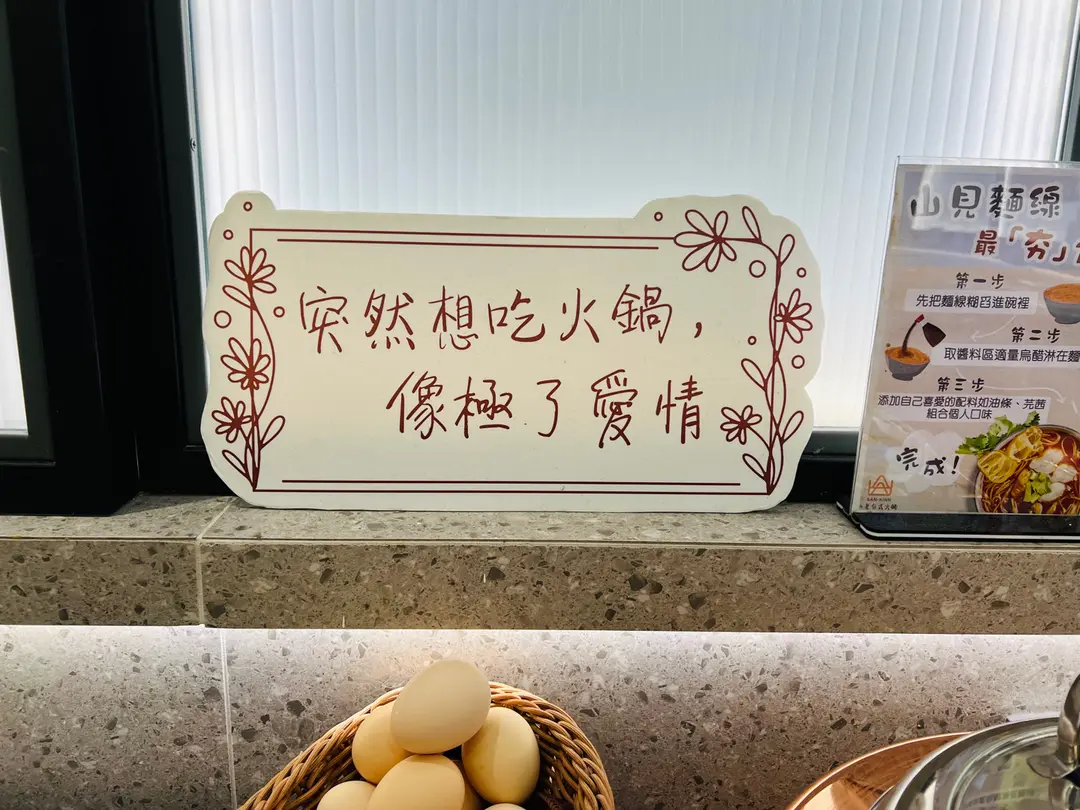 突然想吃火鍋，
像極了愛情
山見麵線
最「夯」
第一步
先把麵線糊舀進碗裡
第二步
取醬料區適量烏醋淋在麵
第三步
添加自己喜愛的配料如油條、芫茜
組合個人口味
完成!